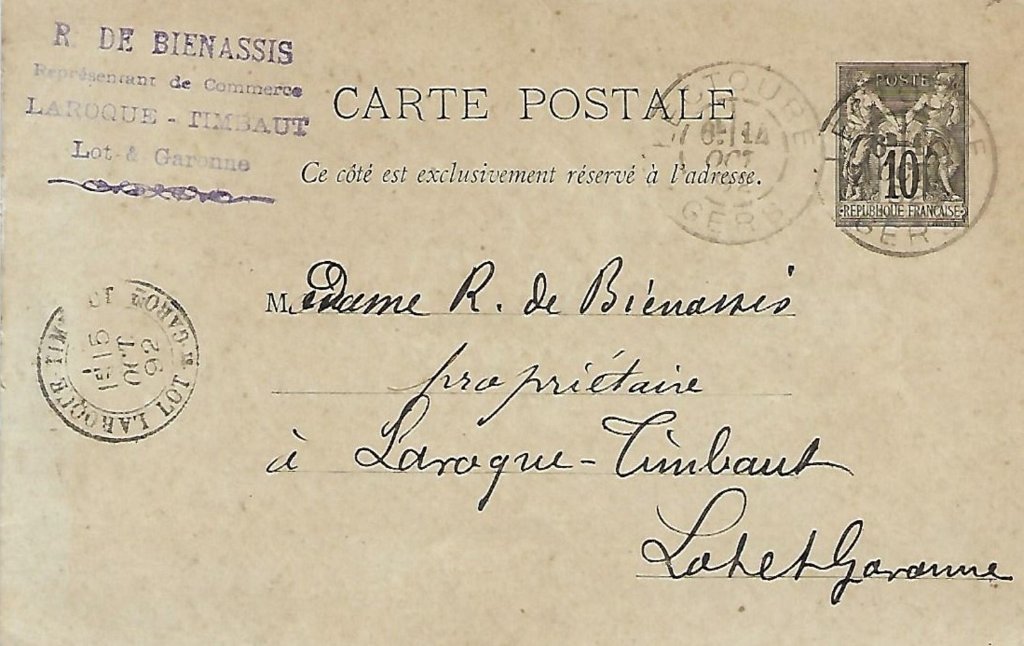 R. DE BIENASSIS
Représentant de Commerce
LAROQUE - TIMBAUT
Lot & Garonne
CARTE POSTALE
Ce côté est exclusivement réservé à l'adresse.
LECTOURE
14
OCT
GERS
POSTE
10
REPUBLIQUE FRANÇAISE
GERS
Madame R. de Biénassis
propriétaire
à Laroque-Timbaut
Lot et Garonne
LAROQUE TIM
15
OCT
92
LOT
GARONNE